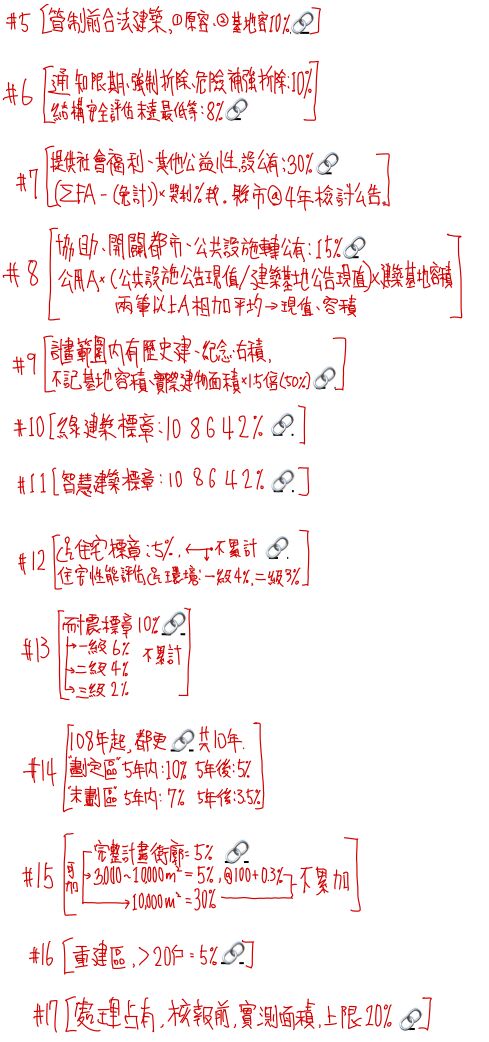 #5 [管制前合法建築、①原容、②基地容10%]
#6 [通知限期、強制拆除、危險補強拆除:10%
結構安全評估未達最低等:8%]
#7 [提供社會福利、其他公益性設公有:30%
(ΣFA-(免計))×獎利%我. 縣市@4年檢討公告]
#8 [協助、開闢都市、公共設施轉公有:15%
公用A×(公共設施公告現值/建築基地公告現值)×建築基地容積
兩筆以上A相加平均→現值、容積]
#9 [計畫範圍內有歷史建、紀念、古積,
不記基地容積、實際建物面積×1.5倍(50%)]
#10 [綠建築標章:10 8 6 4 2%]
#11 [智慧建築標章:10 8 6 4 2%]
#12 [住宅標章:5%, ←→不累計
住宅性能評估 環境:一級4%,二級3%]
#13 [耐震標章10%
→一級6% 不累計
→二級4%
→三級2%]
#14 [108年起,都更 共10年.
"劃定區" 5年內:10% 5年後:5%
"未劃區" 5年內:7% 5年後:3.5%]
#15 [可加 完整計畫街廓=5%
→3,000~10,000m²=5%,@100+0.3% 不累加
→10,000m²=30%]
#16 [重建區,>20戶=5%]
#17 [處理占有,核報前,實測面積,上限20%]